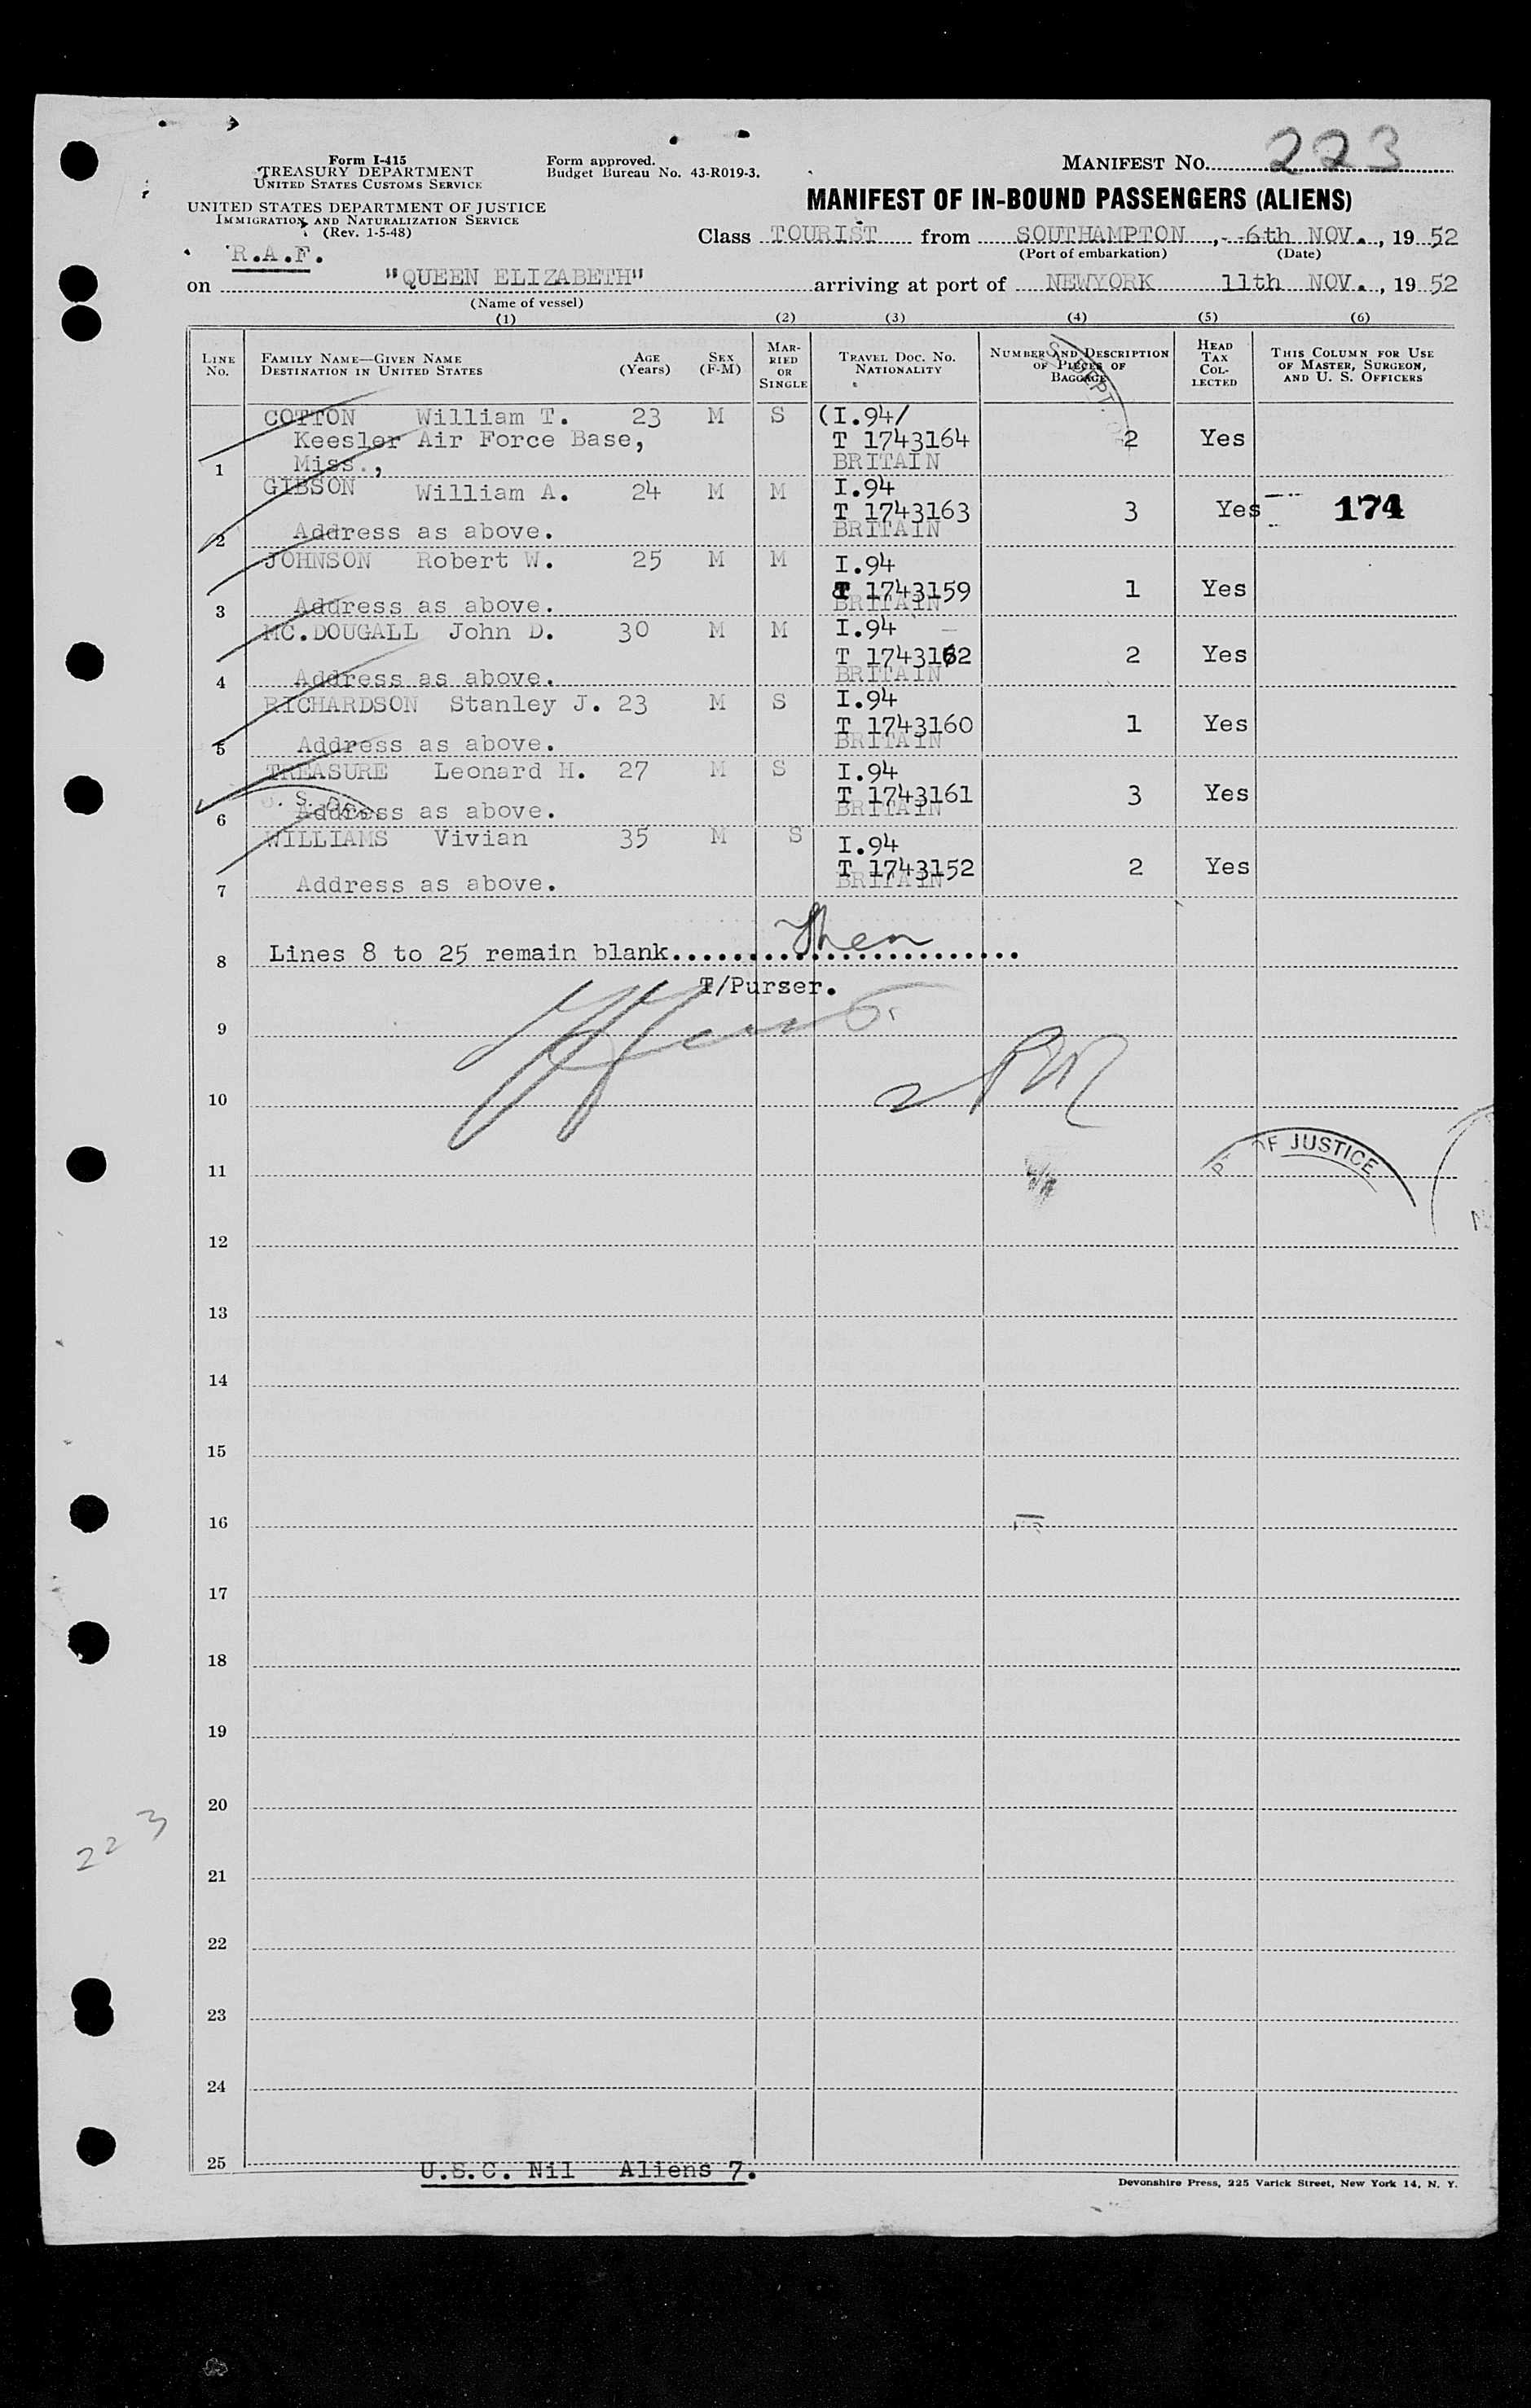 Form I-415
TREASURY DEPARTMENT
UNITED STATES CUSTOMS SERVICE
UNITED STATES DEPARTMENT OF JUSTICE
IMMIGRATION AND NATURALIZATION SERVICE
(Rev. 1-5-48)
Form approved.
Budget Bureau No. 43-R019-3.
MANIFEST NO. 223
MANIFEST OF IN-BOUND PASSENGERS (ALIENS)
Class TOURIST from SOUTHAMPTON, 6th NOV., 1952
(Port of embarkation) (Date)
R.A.F.
on "QUEEN ELIZABETH" arriving at port of NEWYORK 11th NOV., 1952
(Name of vessel)
(1) (2) (3) (4) (5) (6)
LINE NO.
FAMILY NAME—GIVEN NAME
DESTINATION IN UNITED STATES
AGE (Years)
SEX (F-M)
MARRIED OR SINGLE
TRAVEL DOC. NO. NATIONALITY
NUMBER AND DESCRIPTION OF PIECES OF BAGGAGE
HEAD TAX COLLECTED
THIS COLUMN FOR USE OF MASTER, SURGEON, AND U. S. OFFICERS
COTTON William T. 23 M S (I.94/
Keesler Air Force Base, T 1743164 2 Yes
1 Miss., BRITAIN
GIBSON William A. 24 M M I.94
T 1743163 3 Yes 174
2 Address as above. BRITAIN
JOHNSON Robert W. 25 M M I.94
T 1743159 1 Yes
3 Address as above. BRITAIN
MC.DOUGALL John D. 30 M M I.94
T 1743162 2 Yes
4 Address as above. BRITAIN
RICHARDSON Stanley J. 23 M S I.94
T 1743160 1 Yes
5 Address as above. BRITAIN
TREASURE Leonard H. 27 M S I.94
T 1743161 3 Yes
6 Address as above. BRITAIN
WILLIAMS Vivian 35 M S I.94
T 1743152 2 Yes
7 Address as above. BRITAIN
8 Lines 8 to 25 remain blank........................
T/Purser.
9
10
OF JUSTICE
11
12
13
14
15
16
17
18
19
20
223
21
22
23
24
25
U.S.C. Nil Aliens 7.
Devonshire Press, 225 Varick Street, New York 14, N. Y.